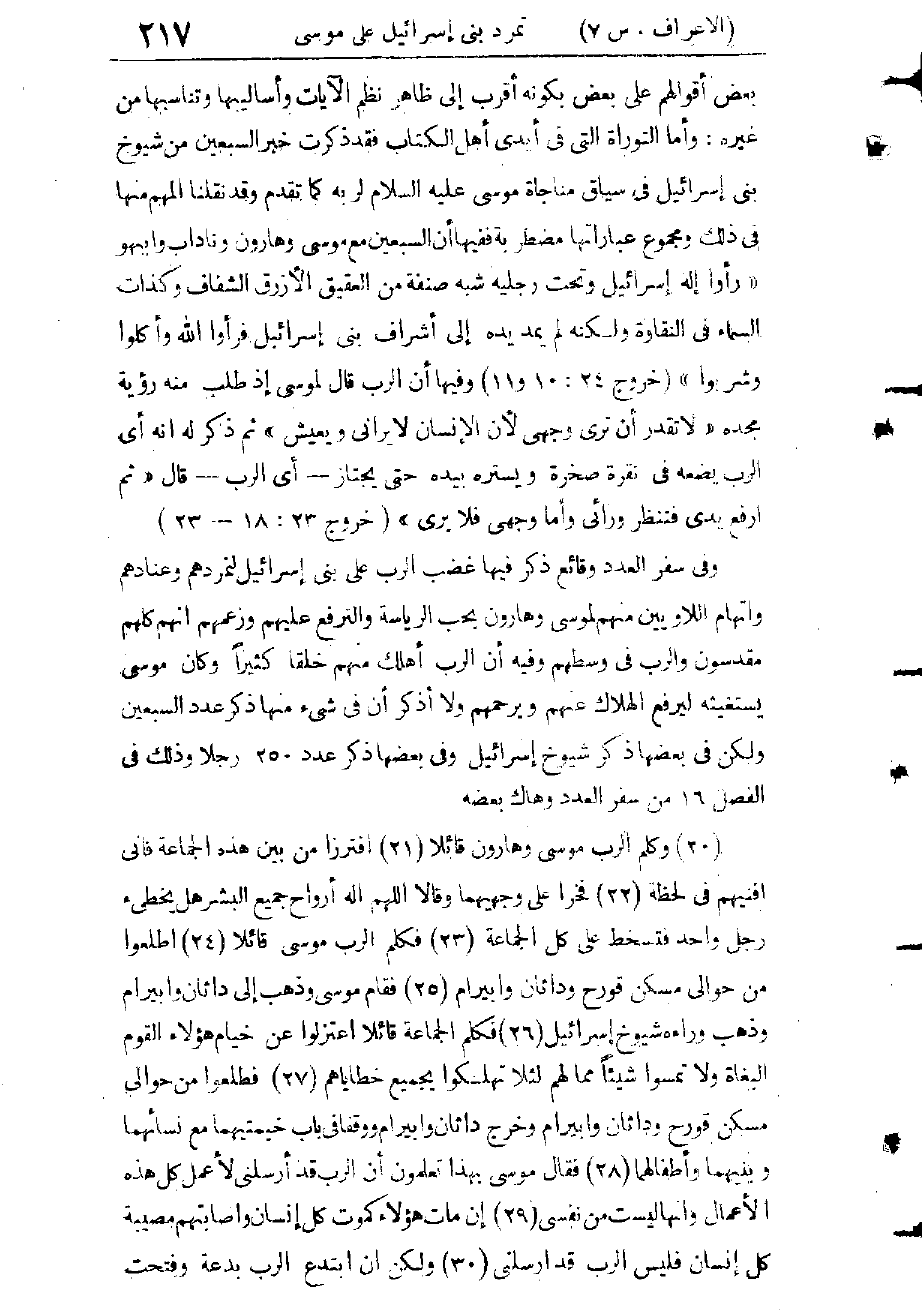 (الاعراف . س ٧) تمرد بنى إسرائيل على موسى ٢١٧
بعض أقوالهم على بعض بكونه أقرب إلى ظاهر نظم الآيات وأساليبها وتناسبها من
غيره : وأما التوراة التى فى أيدى أهل الكتاب فقد ذكرت خبر السبعين من شيوخ
بنى إسرائيل فى سياق مناجاة موسى عليه السلام لربه كما تقدم وقد نقلنا المهم منها
فى ذلك ومجموع عباراتها مضطربة ففيها أن السبعين مع موسى وهارون وناداب وابيهو
« رأوا إله إسرائيل وتحت رجليه شبه صنفة من العقيق الأزرق الشفاف وكذات
السماء فى النقاوة ولكنه لم يمد يده إلى أشراف بنى إسرائيل فرأوا الله وأكلوا
وشربوا » (خروج ٢٤ : ١٠ و١١) وفيها أن الرب قال لموسى إذ طلب منه رؤية
مجده « لاتقدر أن ترى وجهى لأن الإنسان لايرانى ويعيش » ثم ذكر له انه أى
الرب يضعه فى نقرة صخرة ويستره بيده حتى يجتاز — أى الرب — قال « ثم
ارفع يدى فتنظر ورائى وأما وجهى فلا يرى » ( خروج ٢٣ : ١٨ — ٢٣ )
وفى سفر العدد وقائع ذكر فيها غضب الرب على بنى إسرائيل لتمردهم وعنادهم
واتهام اللاويين منهم لموسى وهارون بحب الرياسة والترفع عليهم وزعمهم انهم كلهم
مقدسون والرب فى وسطهم وفيه أن الرب أهلك منهم خلقا كثيراً وكان موسى
يستغيثه ليرفع الهلاك عنهم ويرحمهم ولا أذكر أن فى شىء منها ذكر عدد السبعين
ولكن فى بعضها ذكر شيوخ إسرائيل وفى بعضها ذكر عدد ٢٥٠ رجلا وذلك فى
الفصل ١٦ من سفر العدد وهاك بعضه
(٢٠) وكلم الرب موسى وهارون قائلا (٢١) افترزا من بين هذه الجماعة فانى
افنيهم فى لحظة (٢٢) فخرا على وجهيهما وقالا اللهم اله أرواح جميع البشر هل يخطىء
رجل واحد فتسخط على كل الجماعة (٢٣) فكلم الرب موسى قائلا (٢٤) اطلعوا
من حوالى مسكن قورح وداثان وابيرام (٢٥) فقام موسى وذهب إلى داثان وابيرام
وذهب وراءه شيوخ إسرائيل (٢٦) فكلم الجماعة قائلا اعتزلوا عن خيام هؤلاء القوم
البغاة ولا تمسوا شيئاً مما لهم لئلا تهلكوا بجميع خطاياهم (٢٧) فطلعوا من حوالى
مسكن قورح وداثان وابيرام وخرج داثان وابيرام ووقفا فى باب خيمتيهما مع نسائهما
وبنيهما وأطفالهما (٢٨) فقال موسى بهذا تعلمون أن الرب قد أرسلنى لأعمل كل هذه
الأعمال وانها ليست من نفسى (٢٩) إن مات هؤلاء كموت كل إنسان واصابتهم مصيبة
كل إنسان فليس الرب قد ارسلنى (٣٠) ولكن ان ابتدع الرب بدعة وفتحت